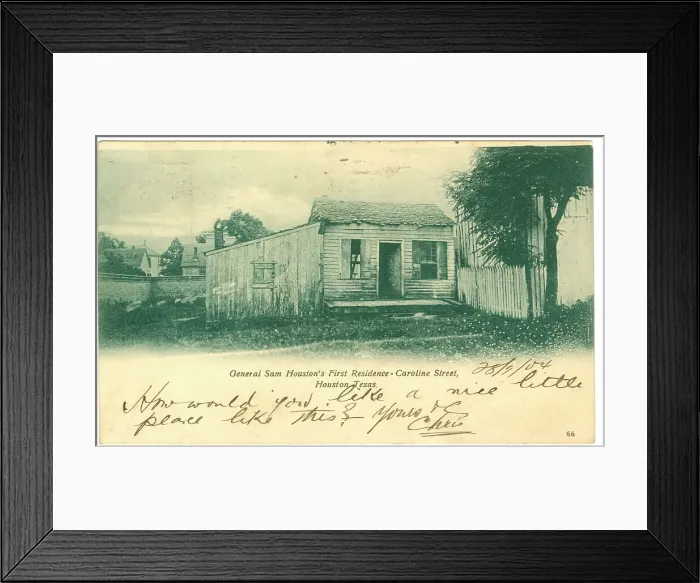 General Sam Houston's First Residence - Caroline Street,
Houston Texas.
28/9/04
How would you like a nice little
peace like this? Yours
Chris
66